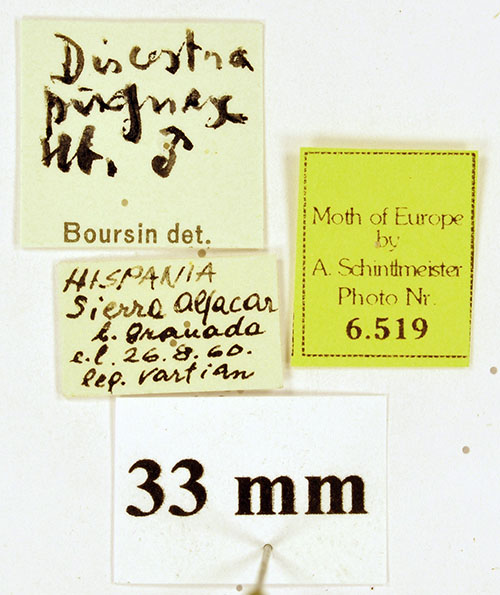 Discestra
pugnax
Hb. ♂
Boursin det.
HISPANIA
Sierra Alfacar
b. Granada
e.l. 26.8.60.
leg. Vartian
Moth of Europe
by
A. Schintlmeister
Photo Nr.
6.519
33 mm